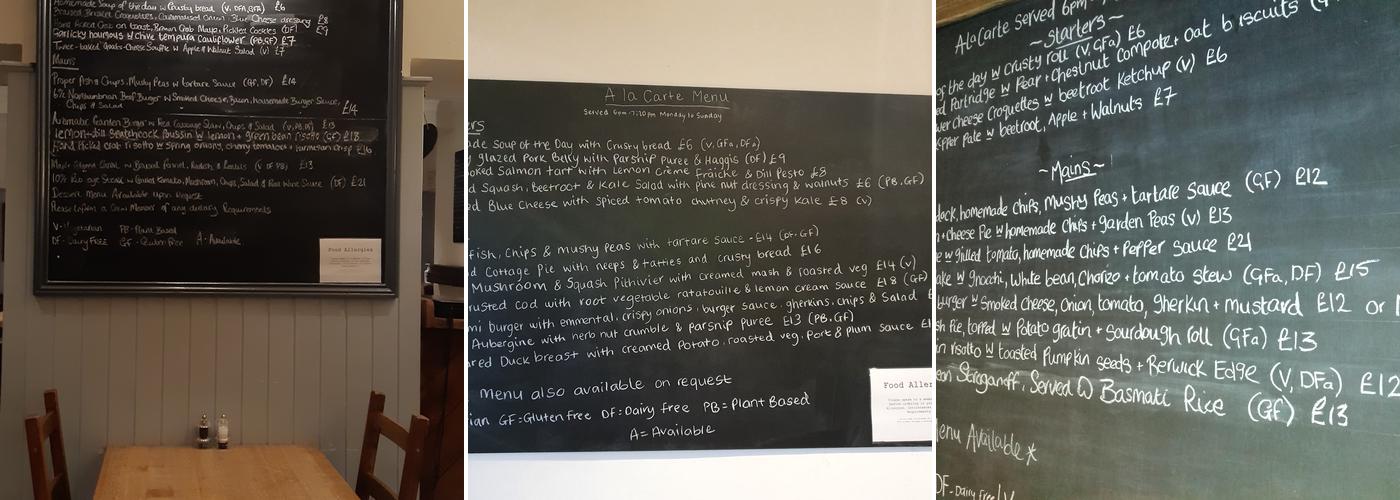 Homemade Soup of the day w Crusty bread (V, DFA, GFA) £6
Braised Brisket Croquettes, Caramelised Onion, Blue Cheese dressing £8
on toast, Brown Crab Mayo, Pickled (DF) £9
Garlicky houmous w chive tempura Cauliflower (PB, GF) £7
Twice-baked Goats Cheese Souffle w Apple & Walnut Salad (V) £7
Mains
Proper Fish & Chips, Mushy Peas w tartare Sauce (GF, DF) £14
6oz Northumbrian Beef Burger w Smoked Cheese, Bacon, housemade Burger Sauce,
Chips & Salad £14
Garden Burger w Slaw, Chips & Salad (V, PB, DF) £13
lemon+dill Spatchcock Poussin w lemon + green bean risotto (GF) £18
Hand Picked Crab risotto w Spring onions, cherry tomatoes + Parmesan Crisp £16
w £13
10oz Rib eye Steak w Grilled tomato, Mushroom, Chips, Salad & Red Wine Sauce (DF) £21
Dessert Menu Available Upon Request
Please Inform a Member of any dietary Requirements
V- PB-Plant Based
DF-Dairy Free GF-Gluten Free A-Available
Food Allergies
A la Carte Menu
Served 6pm-7:30pm Monday to Sunday
ers
ade Soup of the Day with Crusty bread £6 (V, GFa, DFa)
y glazed Pork Belly with Parsnip Puree & Haggis (DF) £9
oked Salmon tart with Lemon crème Fraiche & Dill Pesto £8
d Squash, beetroot & Kale Salad with pine nut dressing & walnuts £6 (PB, GF)
ed Blue Cheese with Spiced tomato chutney & crispy Kale £8 (V)
fish, chips & mushy Peas with tartare sauce -£14 (DF-GF)
d Cottage Pie with neeps & tatties and crusty bread £16
Mushroom & Squash Pithivier with creamed mash & roasted veg £14 (V)
rusted Cod with root vegetable ratatouille & lemon cream sauce £18 (GF)
mi burger with emmental, crispy onions, burger sauce, gherkins, chips & Salad £
Aubergine with herb nut crumble & Parsnip puree £13 (PB, GF)
red Duck breast with creamed Potato, roasted veg, Port & plum sauce £1
Menu also available on request
ian GF=Gluten free DF=Dairy free PB=Plant Based
A=Available
Food Aller
Ala Carte Served 6pm-
~Starters~
of the day w crusty roll (V, GFa) £6
ed Partridge w Pear + Chestnut Compote + oat biscuits (
wer Cheese Croquettes w beetroot Ketchup (V) £6
Pate w beetroot, Apple + Walnuts £7
~Mains~
dock, homemade Chips, Mushy Peas + tartare sauce (GF) £12
n + Cheese Pie w homemade Chips + garden Peas (V) £13
e w grilled tomato, homemade Chips + Pepper sauce £21
ake w Gnocchi, White bean, Chorizo + tomato stew (GFa, DF) £15
burger w Smoked Cheese, Onion, tomato, Gherkin + mustard £12 or
sh Pie, topped w Potato gratin + Sourdough roll (GFa) £13
in risotto w toasted Pumpkin seeds + Berwick Edge (V, DFa) £12
Stroganoff, Served w Basmati Rice (GF) £13
enu Available*
DF-Dairy free